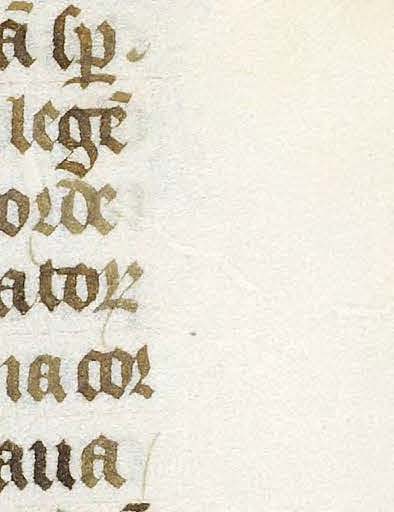 ā sꝑ
legē
orde
atoꝝ
na cor
aua